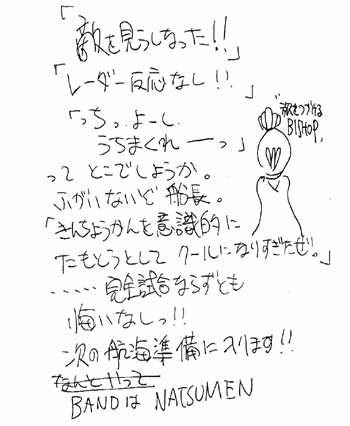 「敵を見うしなった!!」
「レーダー反応なし!!」
「っちっ.よーし.
うちまくれーっ」
って とこでしょうか。
ふがいないぞ 船長。
「きんちょうかんを意識的に
たもとうとして クールになりすぎたぜ。」
......完全試合ならずとも
悔いなしっ!!
次の航海準備に入ります!!
なんとやって
BANDは NATSUMEN
BISHOP.